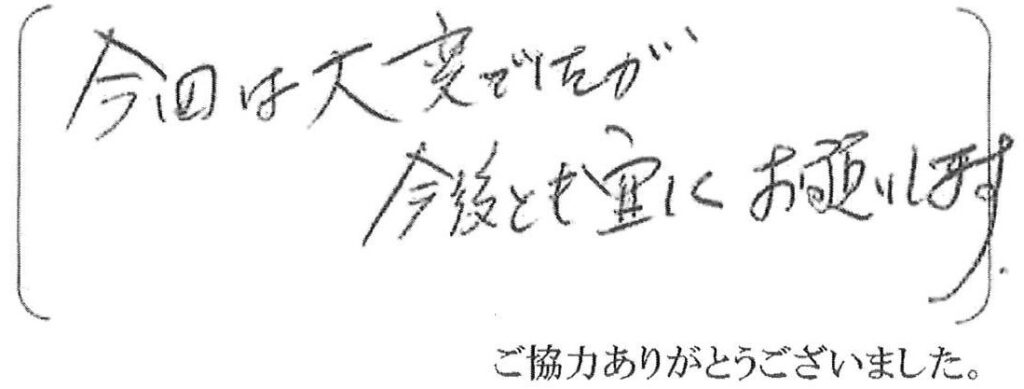 今回は大変でしたが
今後とも宜しくお願いします.
ご協力ありがとうございました。